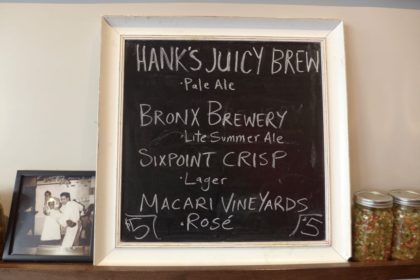 HANK'S JUICY BREW
·Pale Ale
BRONX BREWERY
·Lite Summer Ale
SIXPOINT CRISP
·Lager
MACARI VINEYARDS
$5 ·Rosé $5